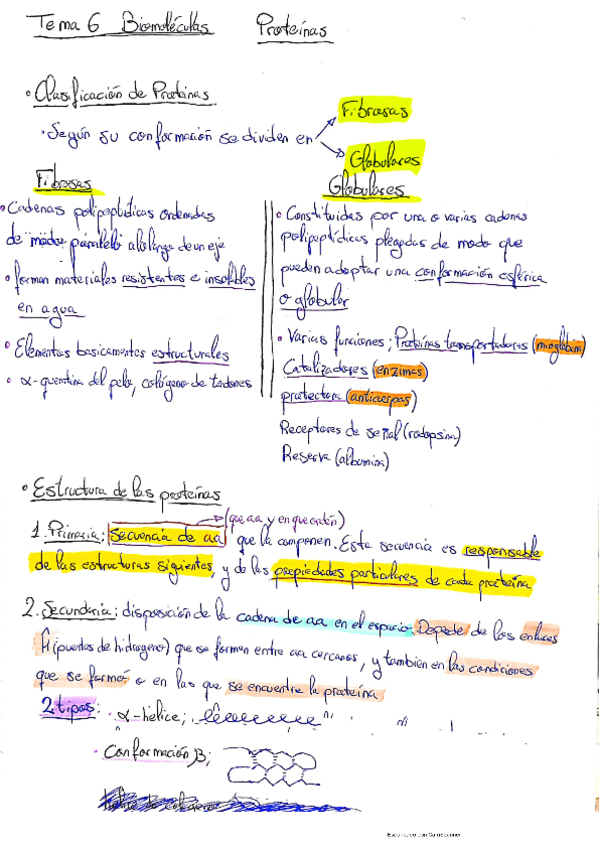 Tema 6 Biomoléculas Proteínas
• Clasificación de Proteínas
• Según su conformación se dividen en
Fibrosas
Globulares
Fibrosas
• Cadenas polipeptídicas ordenadas
de modo paralelo a lo largo de un eje
• forman materiales resistentes e insolubles
en agua
• Elementos basicamentes estructurales
• α-queratina del pelo, colágeno de tendones
Globulares
• Constituidas por una o varias cadenas
polipeptídicas plegadas de modo que
pueden adoptar una conformación esférica
o globular
• Varias funciones; Proteínas transportadoras
Catalizadores (enzimas)
protectora (anticuerpos)
Receptores de señal (rodopsina)
Reserva (albumina)
• Estructura de las proteínas
(que aa y en que orden)
1. Primaria; Secuencia de aa que la componen. Esta secuencia es responsable
de las estructuras siguientes, y de las propiedades particulares de cada proteína
2. Secundaria; disposición de la cadena de aa en el espacio. Depede de los enlaces
(puentes de hidrogeno) que se forman entre aa cercanos, y también en las condiciones
que se formó o en las que se encuentre la proteína
2 tipos: • α-helice;
• Conformación β;